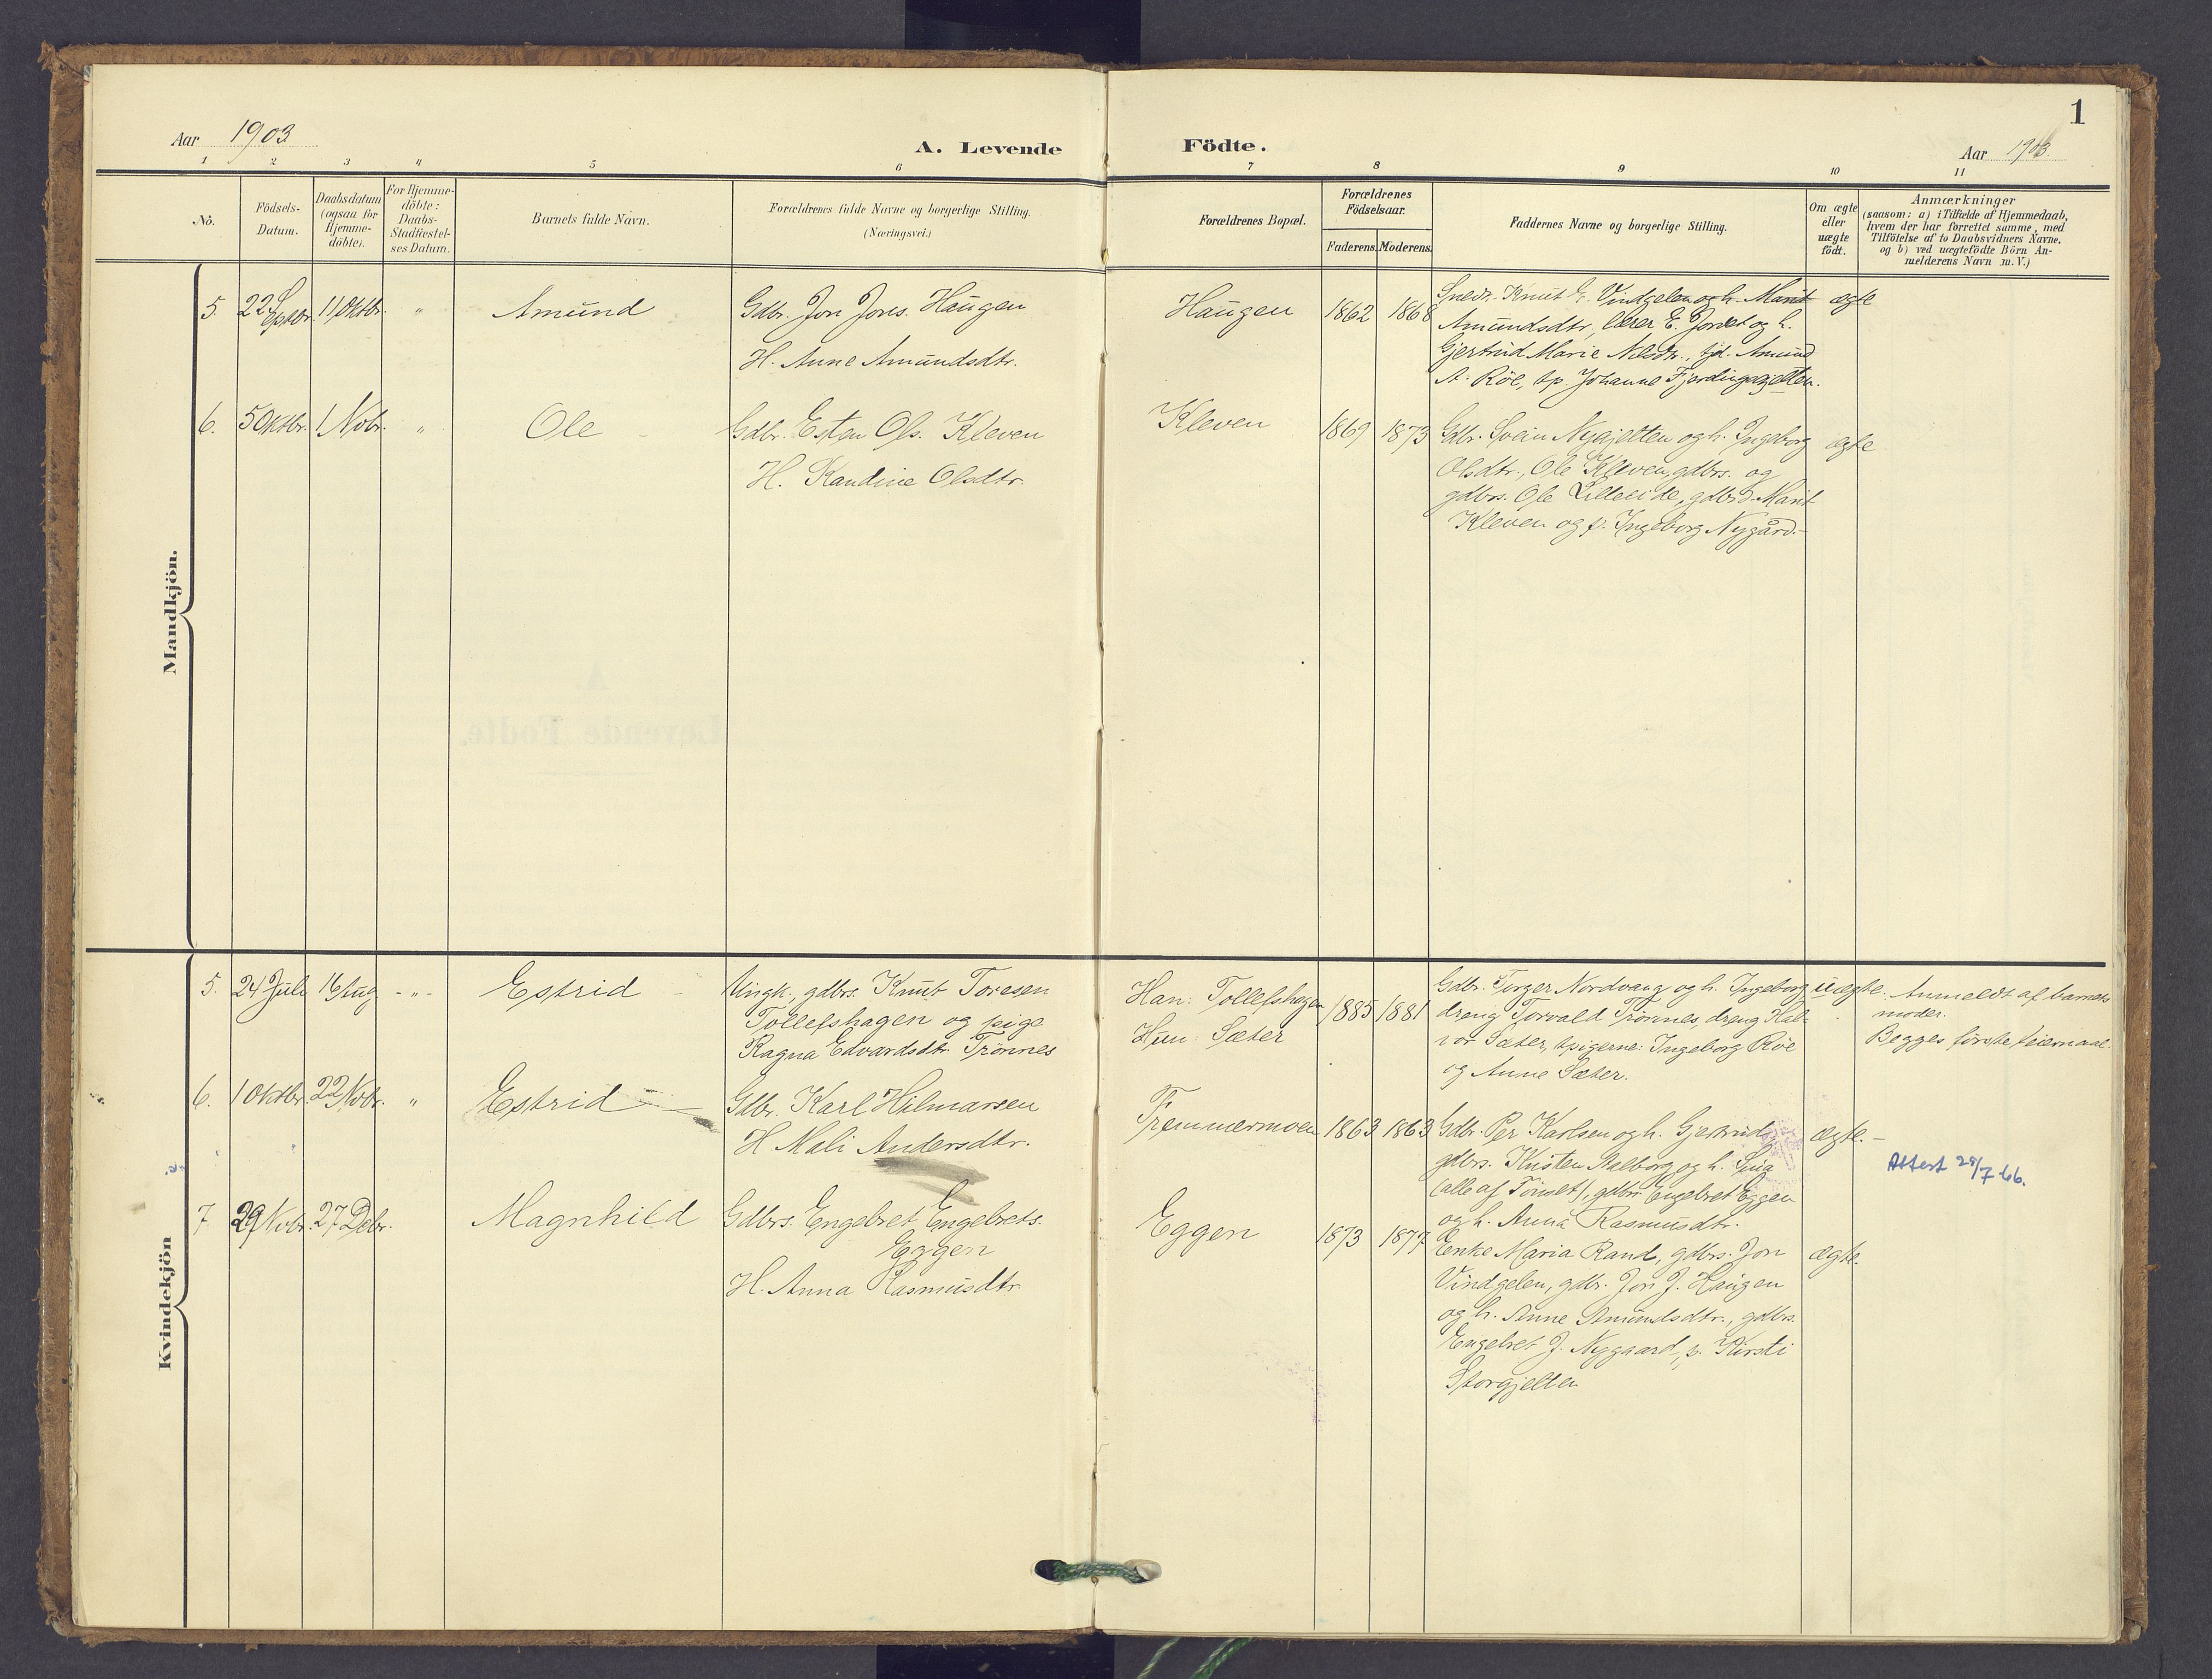 1
Aar 1903
A. Levende Födte.
Aar 1903.
1 2 3 4 5 6 7 8 9 10 11
No.
Födsels-Datum.
Daabsdatum (ogsaa for Hjemme-döbte).
For Hjemme-döbte: Daabs-Stadfæstel-ses Datum.
Barnets fulde Navn.
Forældrenes fulde Navne og borgerlige Stilling.
(Næringsvei.)
Forældrenes Bopæl.
Forældrenes Födselsaar.
Faderens. Moderens.
Faddernes Navne og borgerlige Stilling.
Om ægte eller uægte födt.
Anmærkninger
(saasom: a) i Tilfælde af Hjemmedaab,
hvem der har forrettet samme, med
Tilföielse af to Daabsvidners Navne,
og b) ved uægtefödte Börn An-
melderens Navn m. V.)
Mandkjön.
5. 22 Septbr. 11 Oktbr. " Amund Gdbr. Jon Jons. Haugen Haugen 1862 1868 Knut Vindgelen og h. Marit ægte
H. Anne Amundsdtr. Amundsdtr., lærer E. Jordet og h.
Gjertrud Marie Nilsdtr., Amund
A. Röe, Johanne Fjerdingsgjelten.
6. 5 Oktbr. 1 Nobr. " Ole Gdbr. Esten Ols. Kleven Kleven 1869 1873 Gdbr. Svein Nygjelten og h. Ingeborg ægte
H. Randine Olsdtr. Olsdtr., Ole Kleven, gdbrs. og
gdbrs. Ole Lilleeide, gdbrd. Marit
Kleven og p. Ingeborg Nygård.-
Kvindekjön
5. 24 Juli 16 Aug - " - Estrid Ungk., gdbrs. Knut Toresen Han: Tollefshagen 1885 1881 Gdbr. Torger Nordvang og h. Ingeborg uægte. Anmeldt af barnets
Tollefshagen og pige Hun: Sæter dreng Torvald Trönnes, dreng Hal- moder.
Ragna Edvardsdtr. Trönnes vor Sæter, tpigerne: Ingeborg Röe Begges förste leiermaal.
og Anne Sæter.
6. 1 Oktbr. 22 Nobr. " Estrid Gdbr. Karl Hilmarsen Fremmermoen 1863 1863 Gdbr. Per Karlsen og h. Gjertrud, ægte.-
H Mali Andersdtr. gdbrs. Kristen Aalborg og h.
(alle af Tönset), gdbrs Engebret Eggen
og h. Anna Rasmusdtr.
Attest 28/7 66.
7 29 Nobr. 27 Debr. Magnhild Gdbrs. Engebret Engebrets. Eggen 1873 1877 Enke Maria Rand, gdbrs. Jon ægte.
Eggen Vindgelen, gdbr. Jon J. Haugen
H. Anna Rasmusdtr. og h. Anne Amundsdtr., gdbrs.
Engebret J. Nygaard, p. Kirsti
Storgjelten